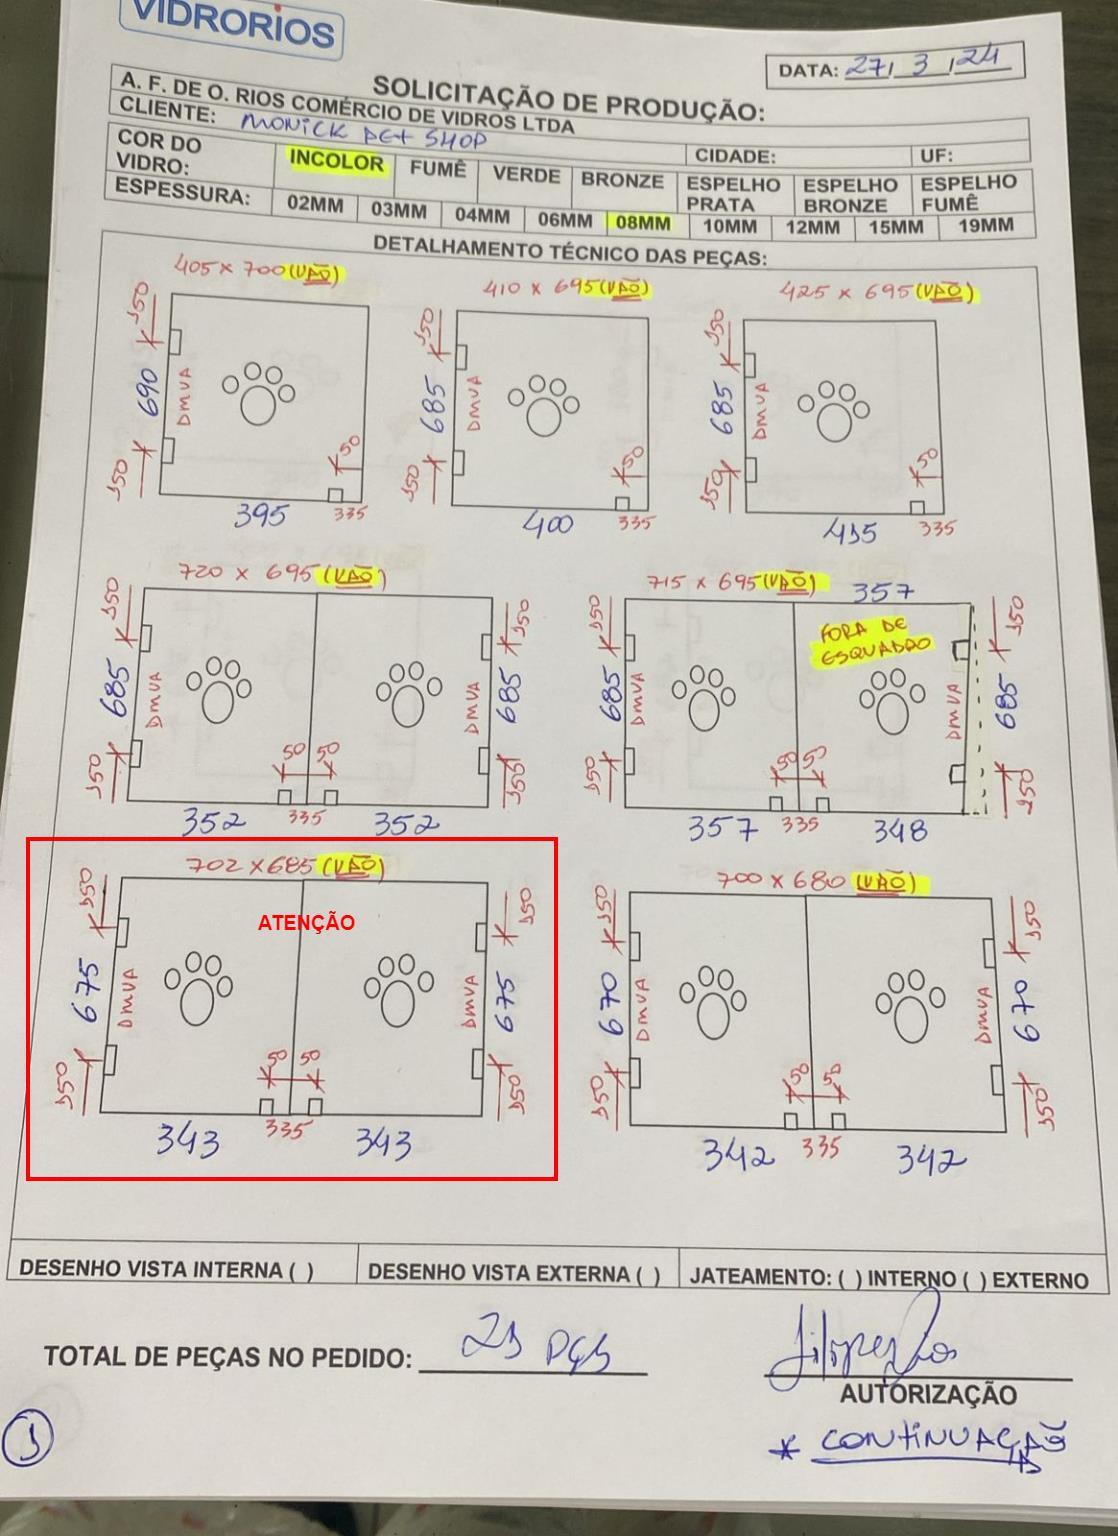 VIDRORIOS
DATA: 27/3/24
SOLICITAÇÃO DE PRODUÇÃO:
A. F. DE O. RIOS COMÉRCIO DE VIDROS LTDA
CLIENTE: MONICK PET SHOP
CIDADE: UF:
COR DO VIDRO: INCOLOR FUMÊ VERDE BRONZE ESPELHO PRATA ESPELHO BRONZE ESPELHO FUMÊ
ESPESSURA: 02MM 03MM 04MM 06MM 08MM 10MM 12MM 15MM 19MM
DETALHAMENTO TÉCNICO DAS PEÇAS:
405 x 700 (VÃO)
150
690
DMVA
150
50
395
335
410 x 695 (VÃO)
150
685
DMVA
150
50
400
335
425 x 695 (VÃO)
150
685
DMVA
150
50
415
335
720 x 695 (VÃO)
150 150
685 DMVA DMVA 685
150 50 50 150
352 335 352
715 x 695 (VÃO) 357
FORA DE
ESQUADRO
150 150
685 DMVA DMVA 685
150 50 50 150
357 335 348
702 x 685 (VÃO)
ATENÇÃO
150 150
675 DMVA DMVA 675
150 50 50 150
343 335 343
700 x 680 (VÃO)
150 150
670 DMVA DMVA 670
150 50 50 150
342 335 342
DESENHO VISTA INTERNA ( ) DESENHO VISTA EXTERNA ( ) JATEAMENTO: ( ) INTERNO ( ) EXTERNO
TOTAL DE PEÇAS NO PEDIDO: 21 PÇS
AUTORIZAÇÃO
* CONTINUAÇÃO
1